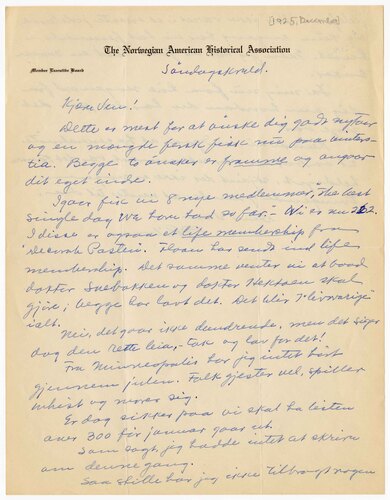 [1925, December]
The Norwegian American Historical Association
Member Executive Board
Søndagskveld.
Kjære Ven!
Dette er mest for at ønske dig godt nytaar
og en mængde fersk fisk nu paa vinters-
tid. Begge to ønsker er fromme og angaar
dit eget indre.
Igaar fik vi 8 nye medlemmer, "the best
single day we have had so far." - Vi er nu 222.
I disse er ogsaa et life membership fra
Decorah Posten. Thoen har sendt ind life
membership. Det samme venter vi at baade
doktor Seebakken og doktor Hektoen skal
gjøre; begge har lovet det. Det blir 7 "livsvarige"
ialt.
Nei, det gaar ikke dundrende, men det siger
dog den rette leia, - tak og lov for det!
Fra Minneapolis har jeg intet hørt
gjennem julen. Folk gjester vel, spiller
whist og morer sig.
Er dog sikker paa vi skal ha listen
over 300 før januar gaar ut.
Som sagt, jeg hadde intet at skrive
om denne gang.
Saa stille har jeg ikke tilbragt nogen